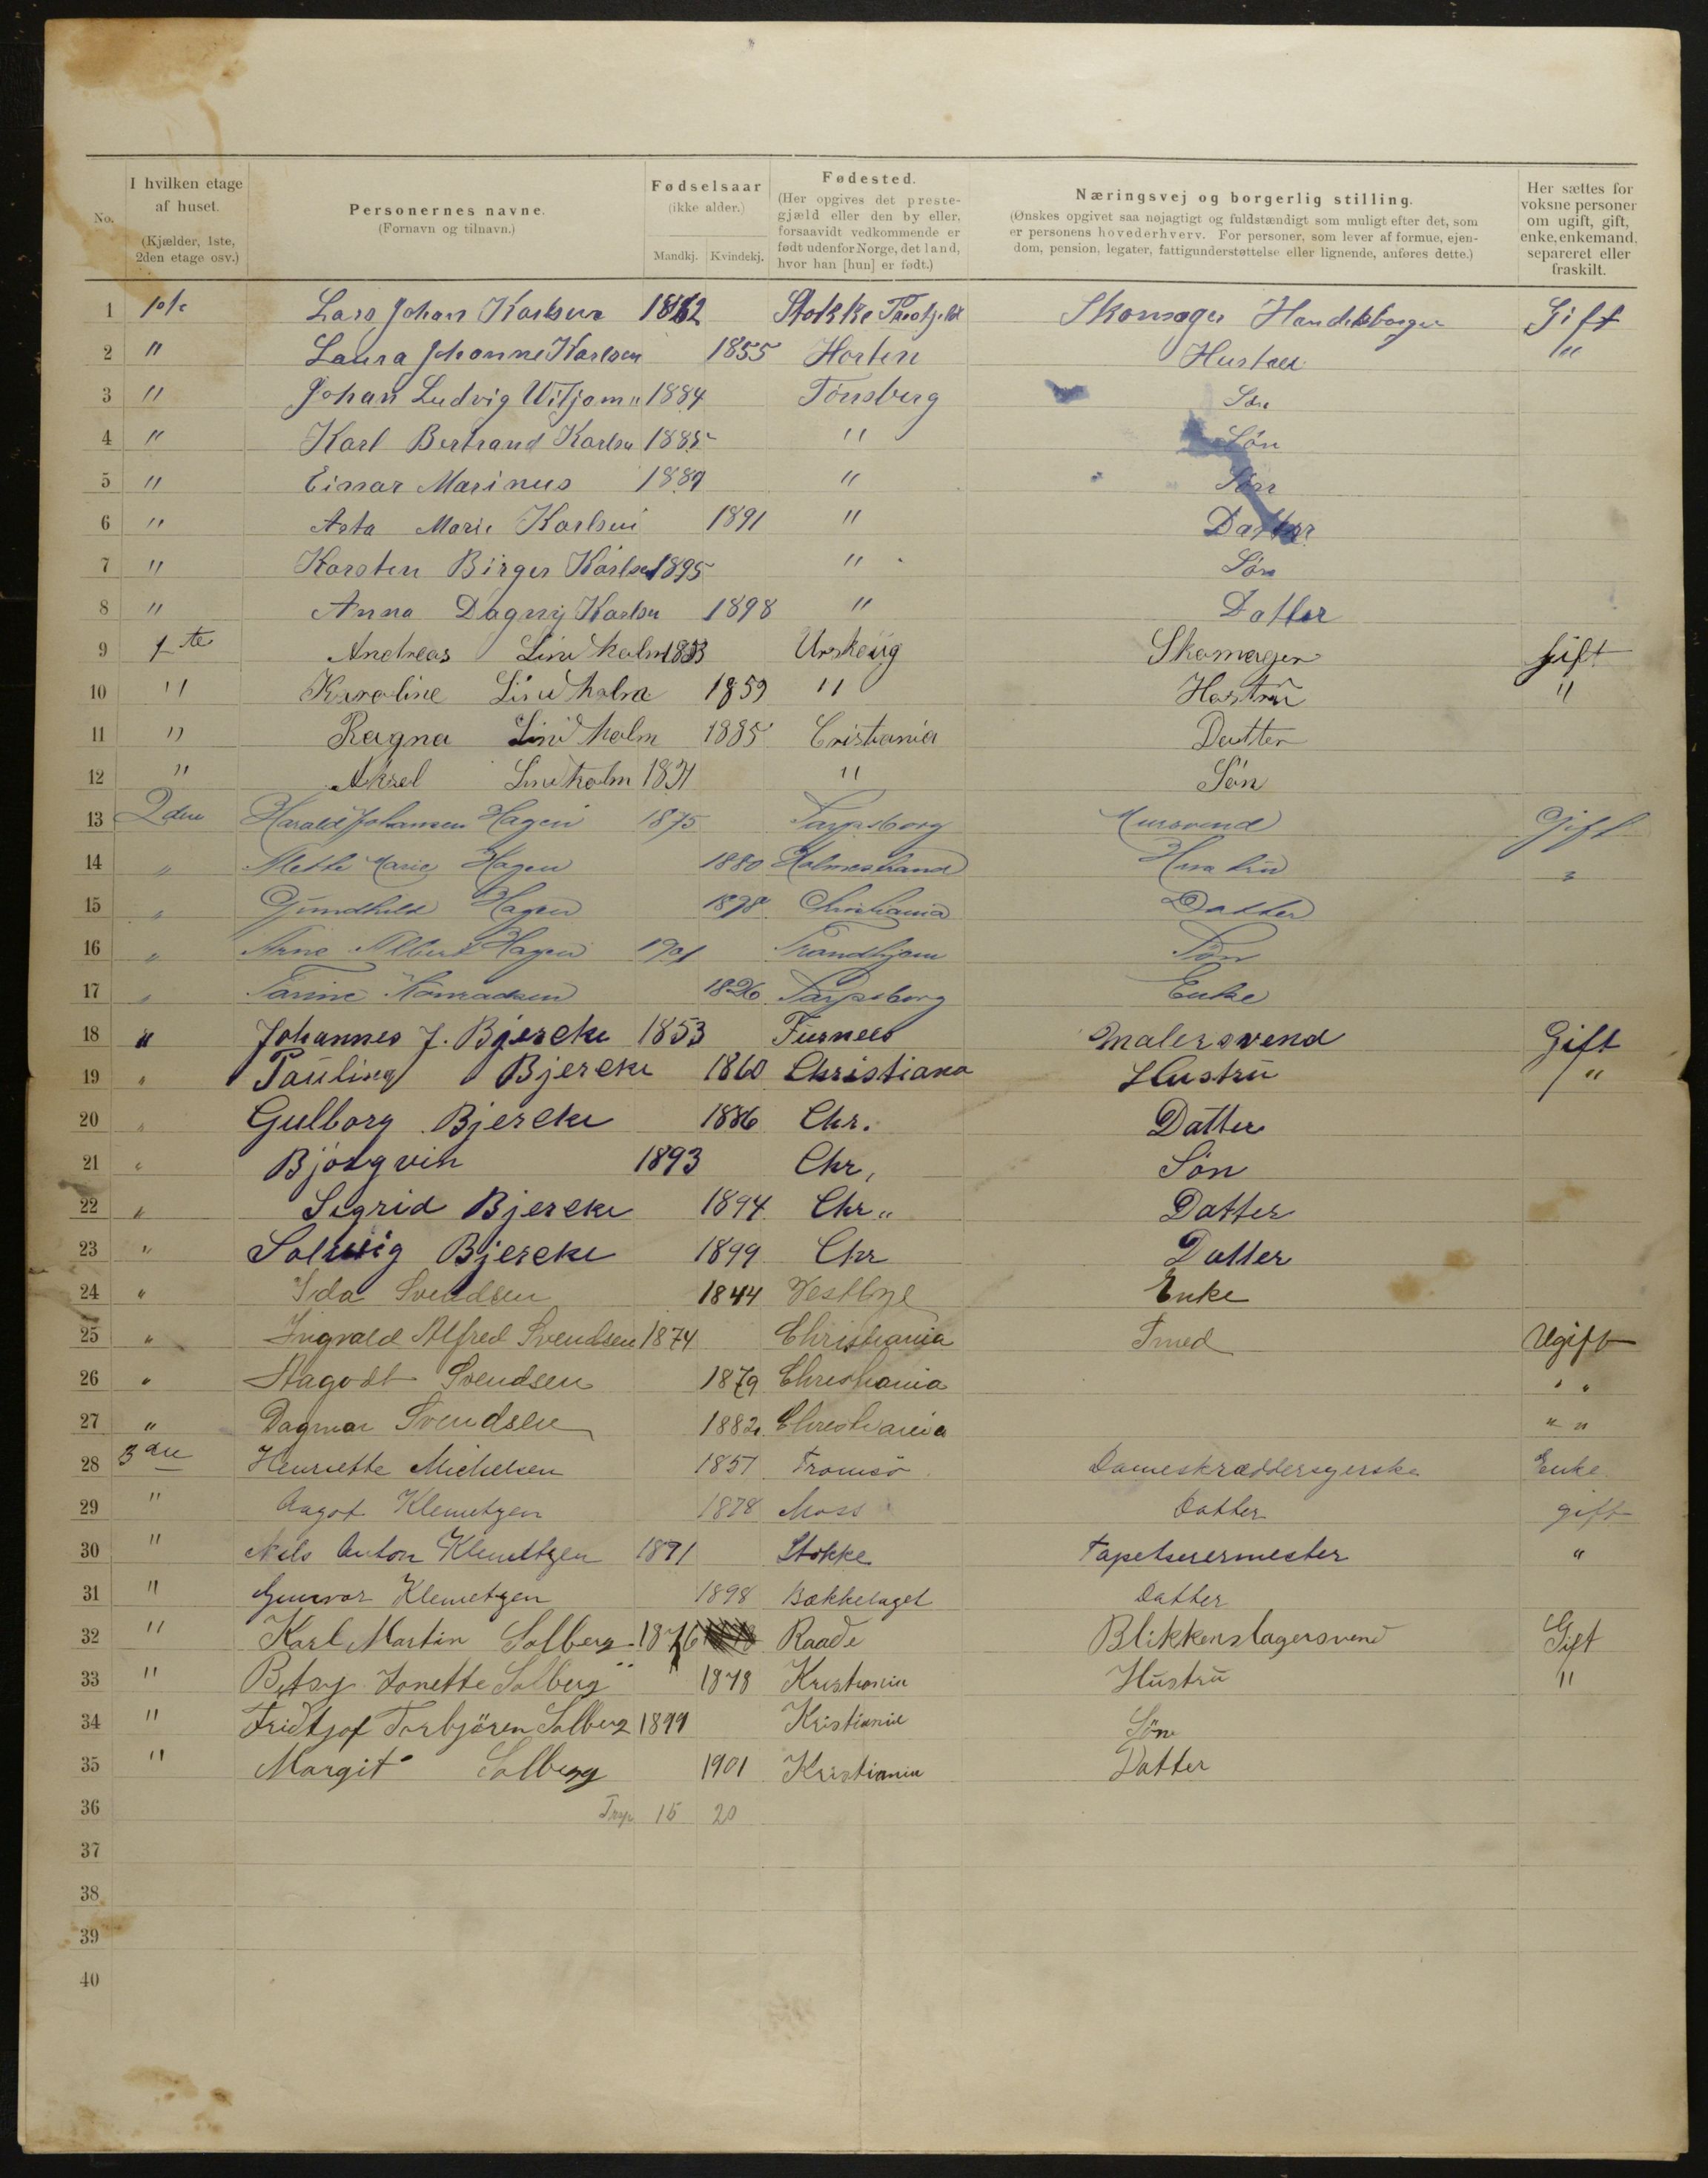 No. | I hvilken etage af huset. (Kjælder, 1ste, 2den etage osv.) | Personernes navne. (Fornavn og tilnavn.) | Fødselsaar (ikke alder.) Mandkj. Kvindekj. | Fødested. (Her opgives det prestegjæld eller den by eller, forsaavidt vedkommende er født udenfor Norge, det land, hvor han [hun] er født.) | Næringsvej og borgerlig stilling. (Ønskes opgivet saa nøjagtigt og fuldstændigt som muligt efter det, som er personens hovederhverv. For personer, som lever af formue, ejendom, pension, legater, fattigunderstøttelse eller lignende, anføres dette.) | Her sættes for voksne personer om ugift, gift, enke, enkemand, separeret eller fraskilt.
1 Lars Johan Karlsen Stokke Skomager Handelsborger Gift
2 " Laura Johanne Karlsen 1855 Horten Hustru "
3 " Johan Ludvig Wiljam " 1884 Tönsberg Sön
4 " Karl Bertrand Karlsen 1885 " Sön
5 " Einar Marinus 1889 " Sön
6 " Asta Marie Karlsen 1891 " Datter
7 " Karsten Birger Karlsen 1895 " Sön
8 " Anna Dagny Karlsen 1898 " Datter
9 1ste Andreas Lindholm Urskoug Skomager Gift
10 " Karoline Lindholm 1859 " Hustrü "
11 " Ragna Lindholm 1885 Cristiania Datter
12 " Aksel Lindholm " Sön
13 2den Harald Johansen Hagen 1875 Sarpsborg Mursvend Gift
14 " Mette Marie Hagen 1880 Holmestrand Hustru "
15 " Gundhild Hagen 1898 Christiania Datter
16 " Arne Albert Hagen 1901 Trondhjem Sön
17 " Karine Konradsen 1826 Sarpsborg Enke
18 " Johannes J. Bjercke 1853 Furnes Malersvend Gift
19 " Paulina Bjercke 1860 Christiana Hustrü "
20 " Gulborg Bjercke 1886 Chr. Datter
21 " Björgvin 1893 Chr, Sön
22 " Sigrid Bjercke 1894 Chr " Datter
23 " Solveig Bjercke 1899 Chr Datter
24 " Ida Svendsen 1844 Vestbye Enke
25 " Ingvald Alfred Svendsen 1874 Christiania Smed Ugift
26 " Aagodt Svendsen 1879 Christiania " "
27 " Dagmar Svendsen 1882 Christiania " "
28 3die Henriette Michelsen 1851 Tromsö Dameskræddersyerske Enke
29 " Aagot Klemetzen 1878 Moss Datter gift
30 " Nils Anton Klemetzen 1871 Stokke Tapetserermester "
31 " Gunvor Klemetzen 1898 Bækkelaget Datter
32 " Karl Martin Solberg 1876 Raade Blikkenslagersvend Gift
33 " Betsy Jonette Solberg 1878 Kristiania Hüstrü "
34 " Fridtjof Torbjören Solberg 1899 Kristiania Sön
35 " Margit Solberg 1901 Kristiania Datter
36 15 20
37
38
39
40